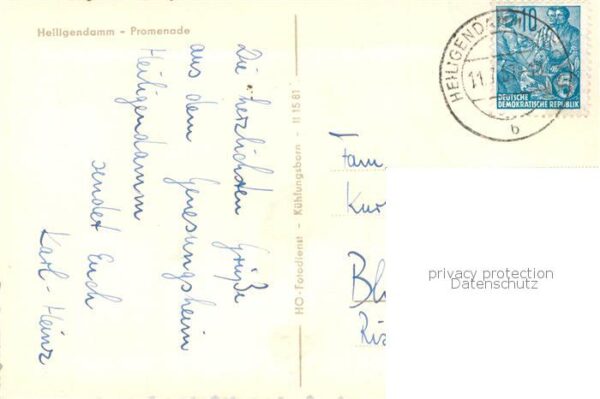 Heiligendamm - Promenade
Die herzlichsten Grüße
aus dem Genesungsheim
Heiligendamm
sendet Euch
Karl-Heinz
HO-Fotodienst - Kühlungsborn - II 15 81
HEILIGENDA
11.
b
10
DEUTSCHE
DEMOKRATISCHE REPUBLIK
Fam.
Kur
Bl
privacy protection
Datenschutz